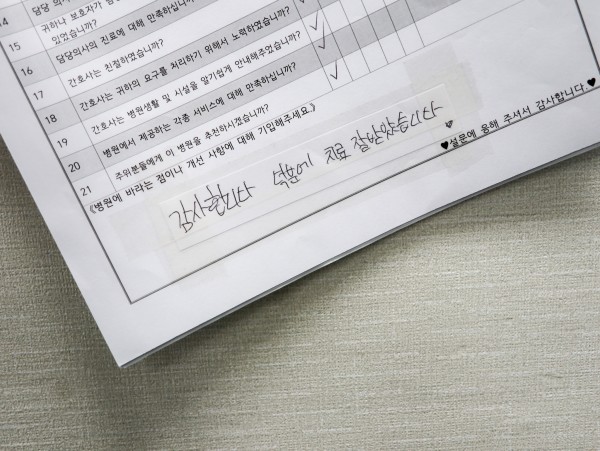 14 담당 의
귀하나 보호자가
15 있었습니까?
16 담당의사의 진료에 대해 만족하십니까?
17 간호사는 친절하였습니까?
18 간호사는 귀하의 요구를 처리하기 위해서 노력하였습니까?
19 간호사는 병원생활 및 시설을 알기쉽게 안내해주었습니까?
20 병원에서 제공하는 각종 서비스에 대해 만족하십니까?
21 주위분들에게 이 병원을 추천하시겠습니까?
《병원에 바라는 점이나 개선 사항에 대해 기입해주세요.》
감사합니다 덕분에 치료 잘받았습니다
♥설문에 응해 주셔서 감사합니다.♥